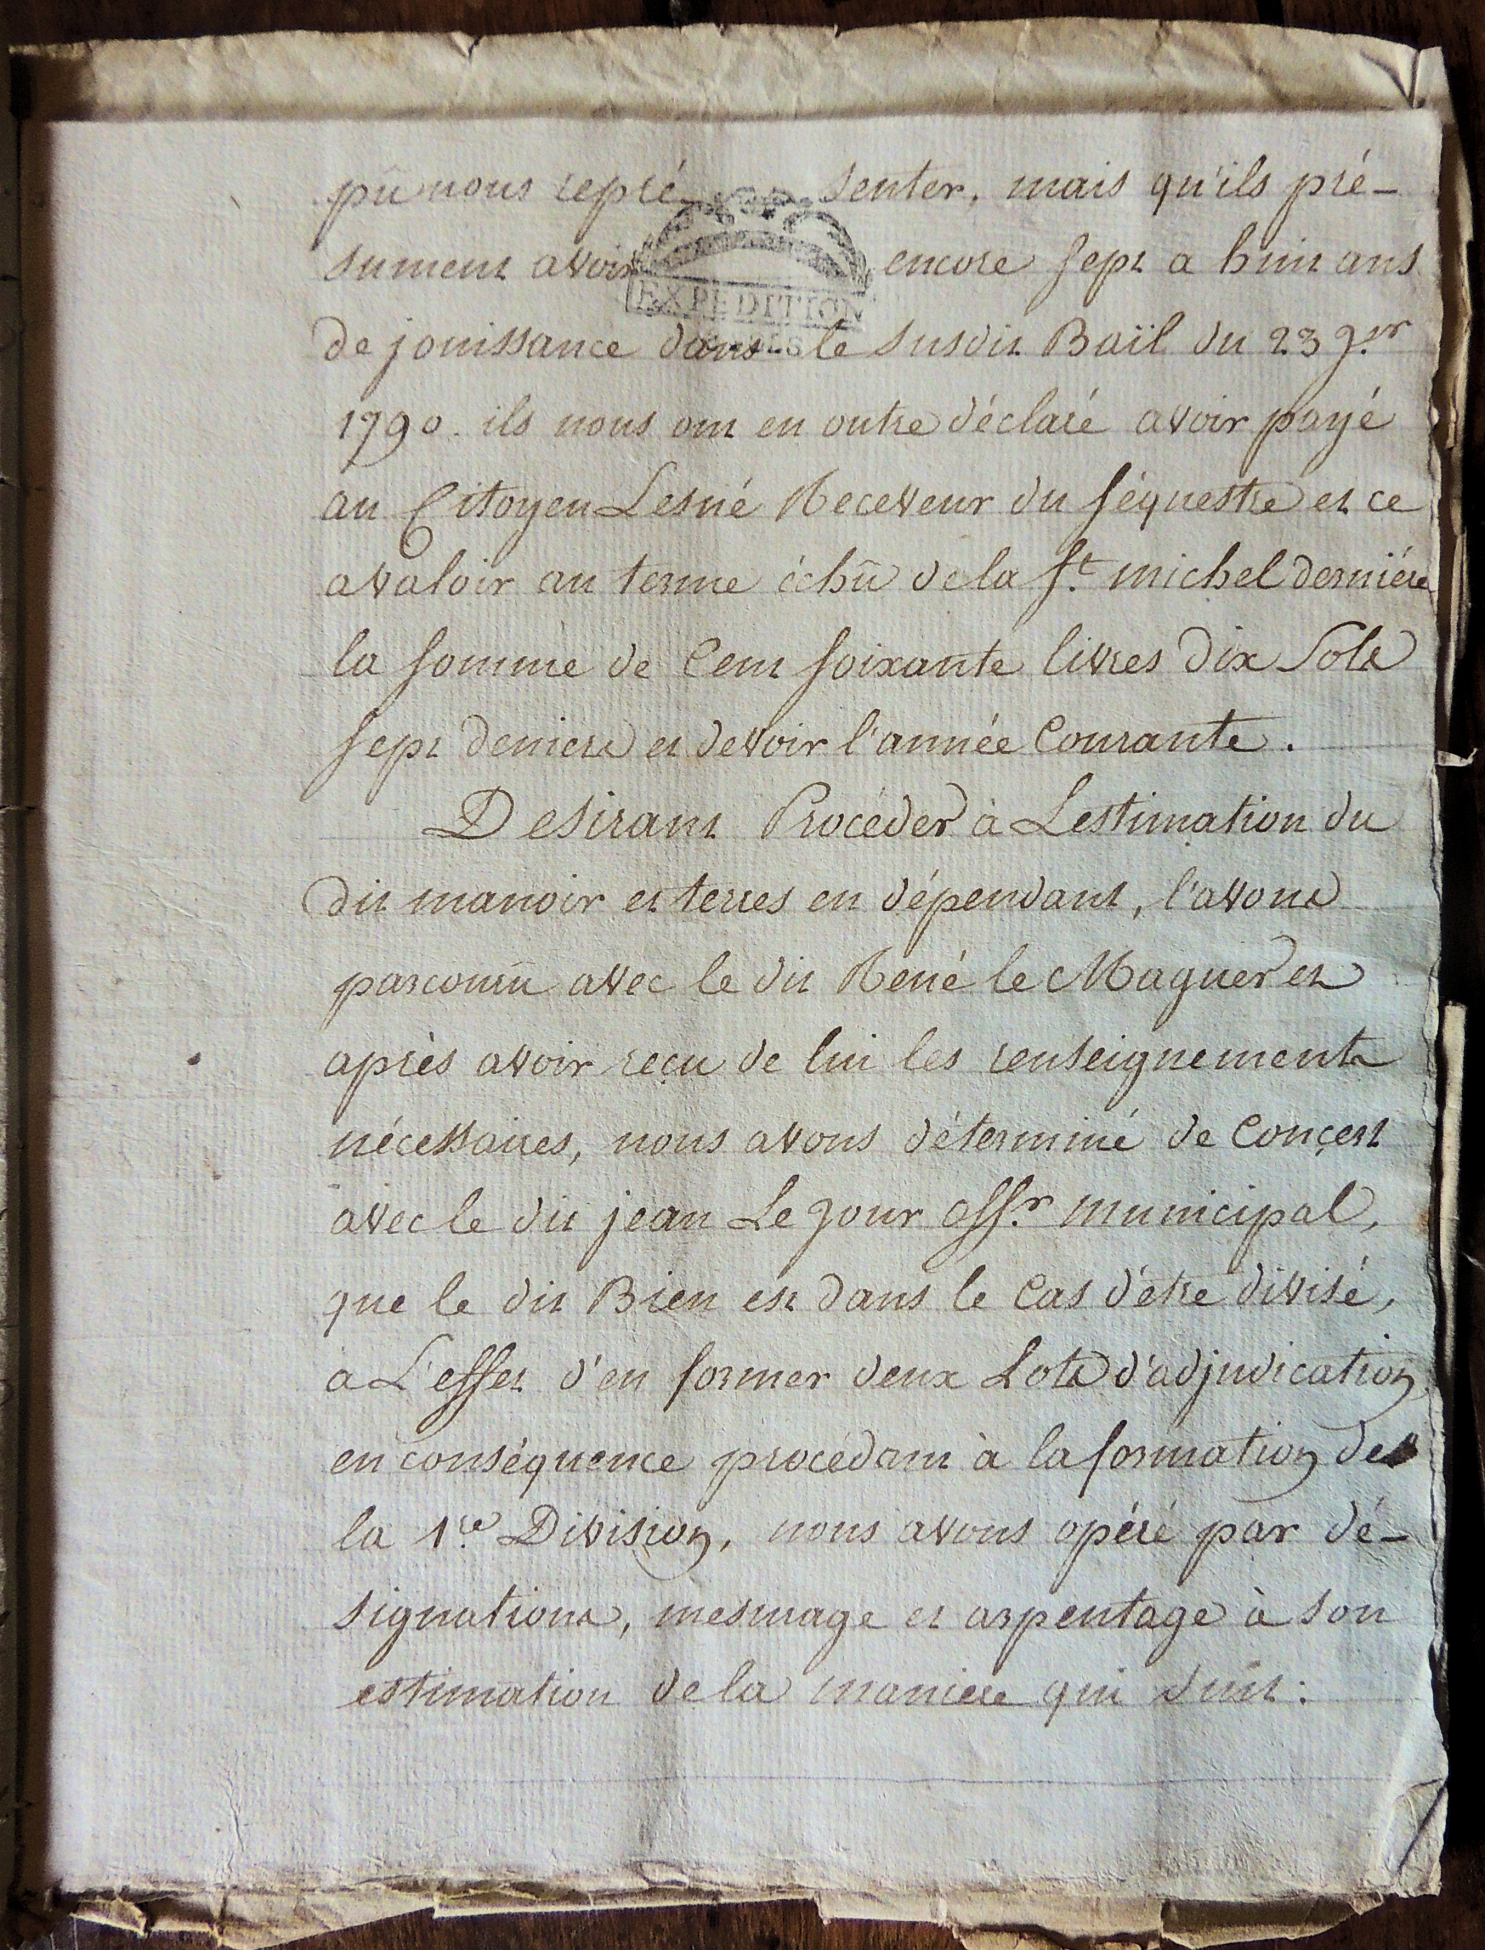 pû nous repré- senter, mais qu'ils pré-
sument avoir encore sept a huit ans
EXPEDITION
de jouissance dans le susdit Baïl du 23 9.br
1790. ils nous ont en outre déclaré avoir payé
au Citoyen Lesné Receveur du séquestre et ce
avaloir au terme échû dela St. michel derniére
la somme de Cent soixante livres dix Sols
sept deniers et devoir l'année Courante.
Desirant Procéder à Lestimation du
dit manoir et terres en dépendant, l'avons
parcouru avec le dit René le Maguer et
après avoir reçu de lui les renseignements
nécessaires, nous avons déterminé de Conçert
avec le dit jean Le jour off.r municipal,
que le dit Bien est dans le Cas d'être divisé,
a L'effet d'en former deux Lots d'adjudication
en conséquence procédant à la formation de
la 1.re Division, nous avons opéré par dé-
signations, mesurage et arpentage à son
estimation dela maniere qui suit: